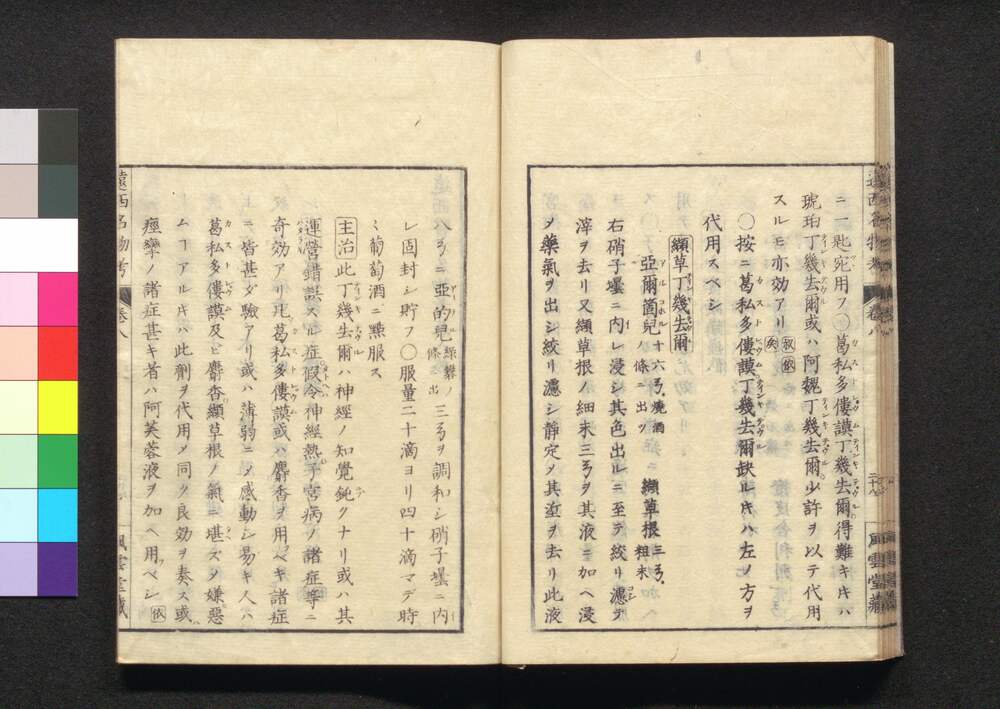 ニ一匙宛用フ○葛私多僂謨丁幾去爾得難キキハ
琥珀丁幾去爾或ハ阿魏丁幾去爾少許ヲ以テ代用
スルモ亦効アリ
○按ニ葛私多僂謨丁幾去爾缺ルキハ左ノ方ヲ
代用スベシ
纈草丁幾去爾
亞爾箇兒十六ヲ、燒酒ノ條ニ出ヅ 纈草根三ヲ、粗末
右硝子壜ニ内レ浸シ其色出ルニ至テ絞リ濾ヲ
滓ヲ去リ又纈草根ノ細末三ヲヲ其液ニ加ヘ浸
ヲ藥氣ヲ出シ絞リ濾シ靜定ノ其滓ヲ去リ此液
遠西名物考 卷八 風雲堂藏
八ヲニ亞的兒 條出 三ヲヲ調和シ硝子壜ニ内
レ固封シ貯フ○服量二十滴ヨリ四十滴マデ時
〻葡萄酒ニ點服ス
主治此丁幾去爾ハ神經ノ知覺鈍クナリ或ハ其
運營錯誤スル症假令神經熱子宮病ノ諸症等ニ
奇効アリ凡葛私多僂謨或ハ麝香ヲ用ベキ諸症
ニ皆甚ダ驗アリ或ハ薄弱ニメ感動シ易キ人ハ
葛私多僂謨及ビ麝香纈草根ノ氣ニ堪ズメ嫌惡
ムーアルキハ此劑ヲ代用メ同ク良効ヲ奏ス或
痙攣ノ諸症甚キ者ハ阿芙蓉液ヲ加ヘ用ベシ
遠西名物考 卷八 風雲堂藏